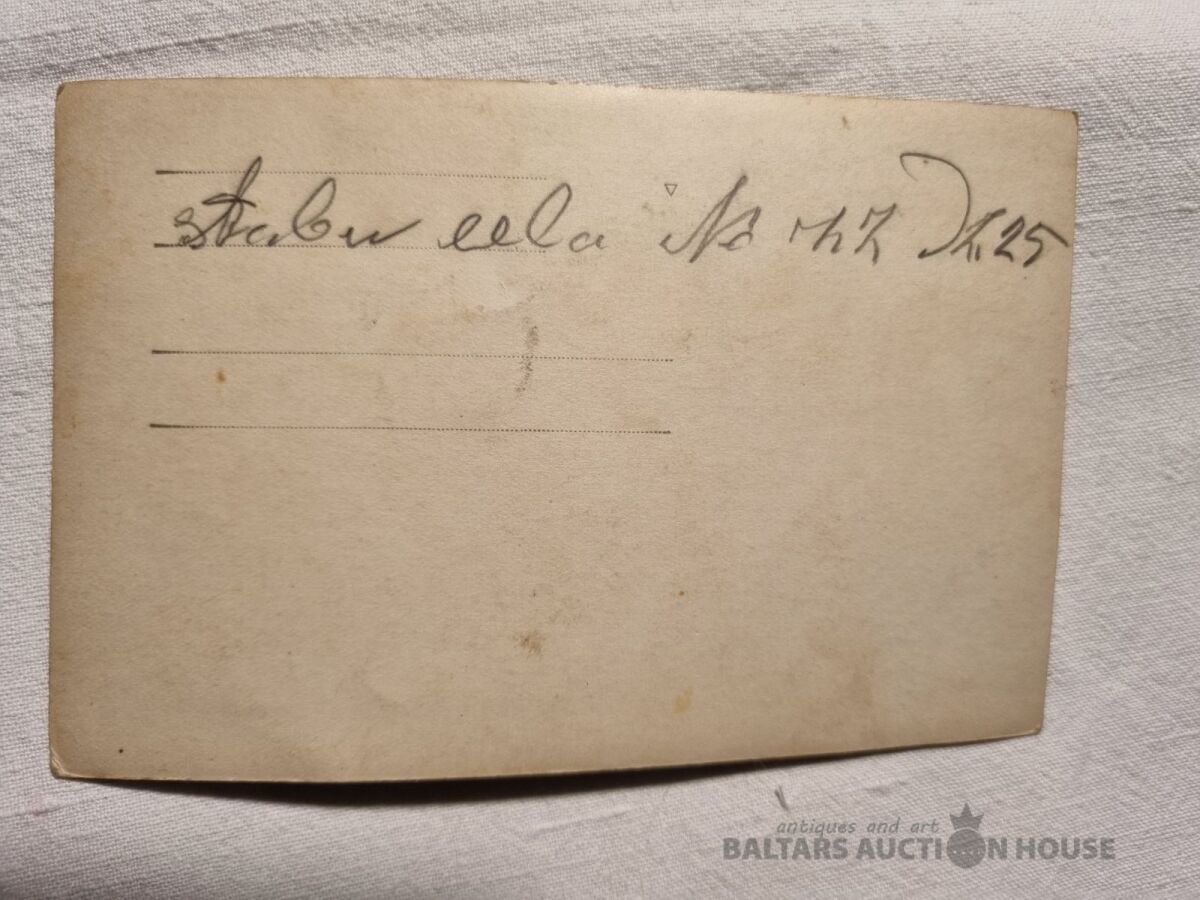 stabu eela № 77 Dz 25
antiques and art
BALTARS AUCTION HOUSE